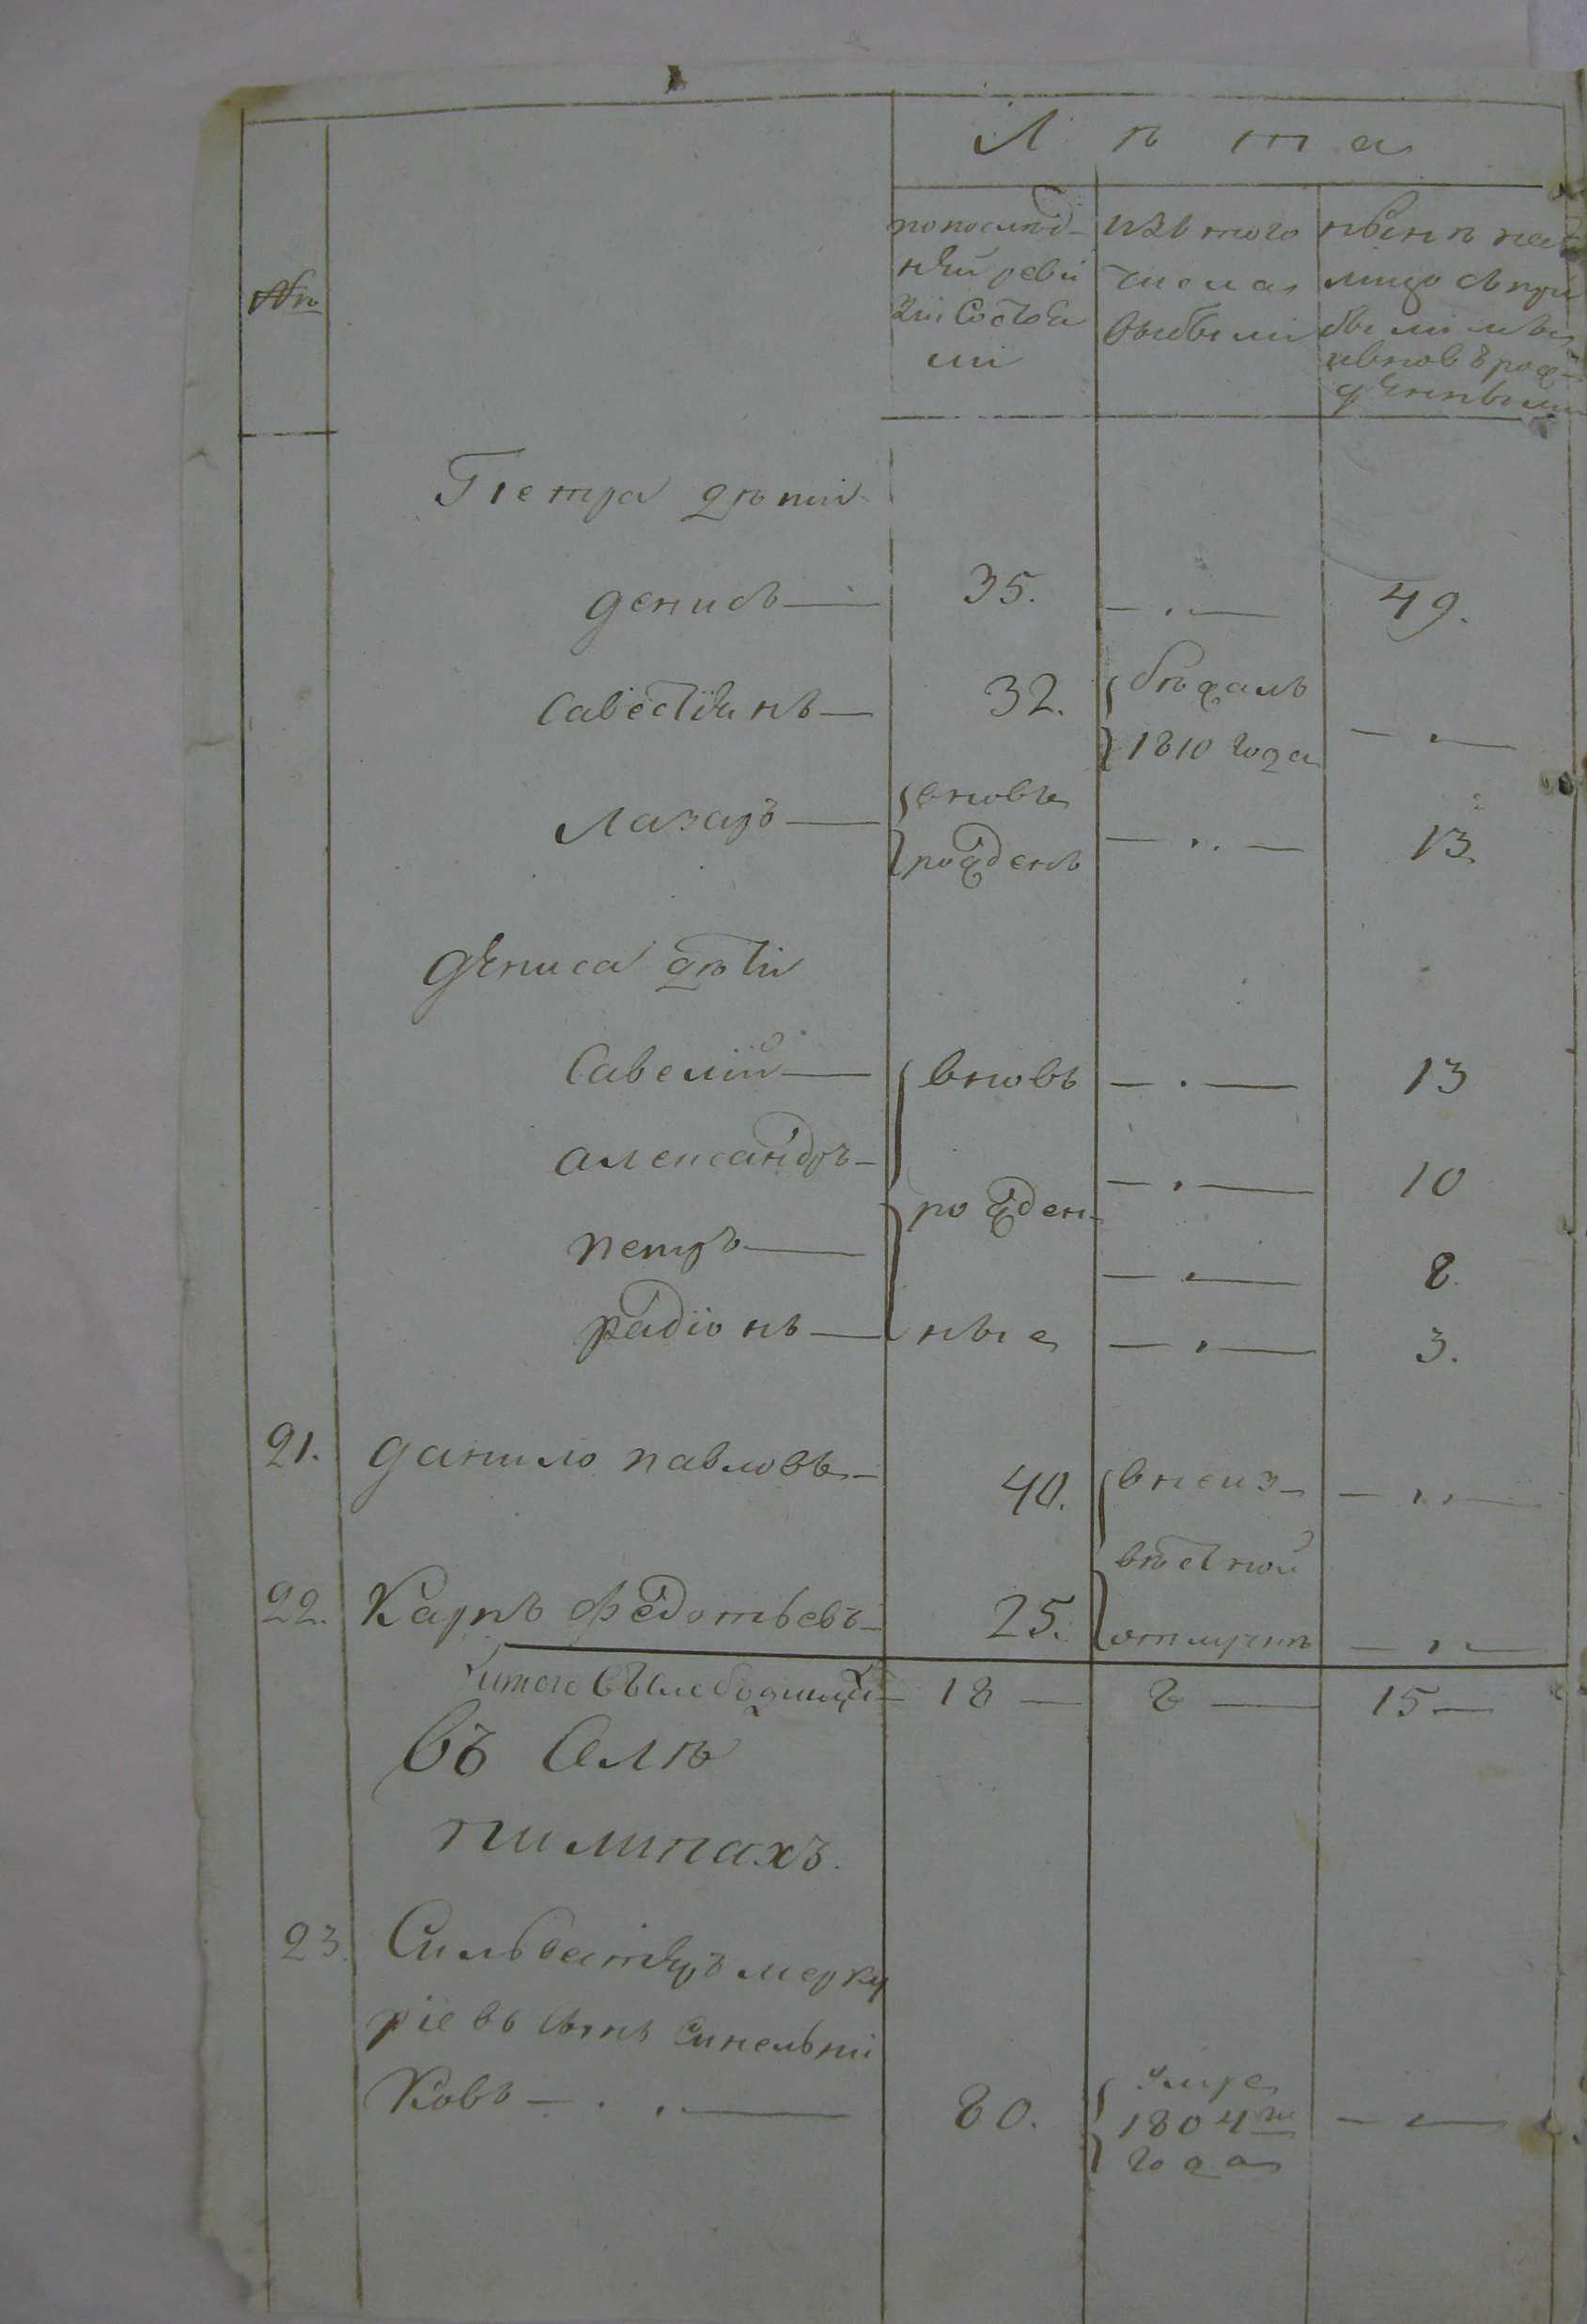 Лѣта
№
попослѣд-
нѣй реви
зіи Состоя
ли
изъ того
числа
выбыли
нынѣ на
лицо съпри
былыми
ивновъ рож-
денными
Петра дѣти
денисъ — 35. — 49.
Савестіянъ — 32. бѣжалъ
1810 года —
лазарь — вновь
рожденъ — 13
дениса дѣти
Савелій — вновь — 13
александръ — 10
рожден-
петръ — 8.
радіонъ — ные — 3.
21. данило павловъ — 40. внеиз- —
вѣстной
22. Карпъ федотьевъ — 25. отлучкѣ —
итого въслободищи — 18 — 8 — 15 —
въ Селѣ
пилипахъ.
23. Сильвестръ мерку
ріевъ сынъ Синельни
Ковъ — 80. умре
1804го
года —